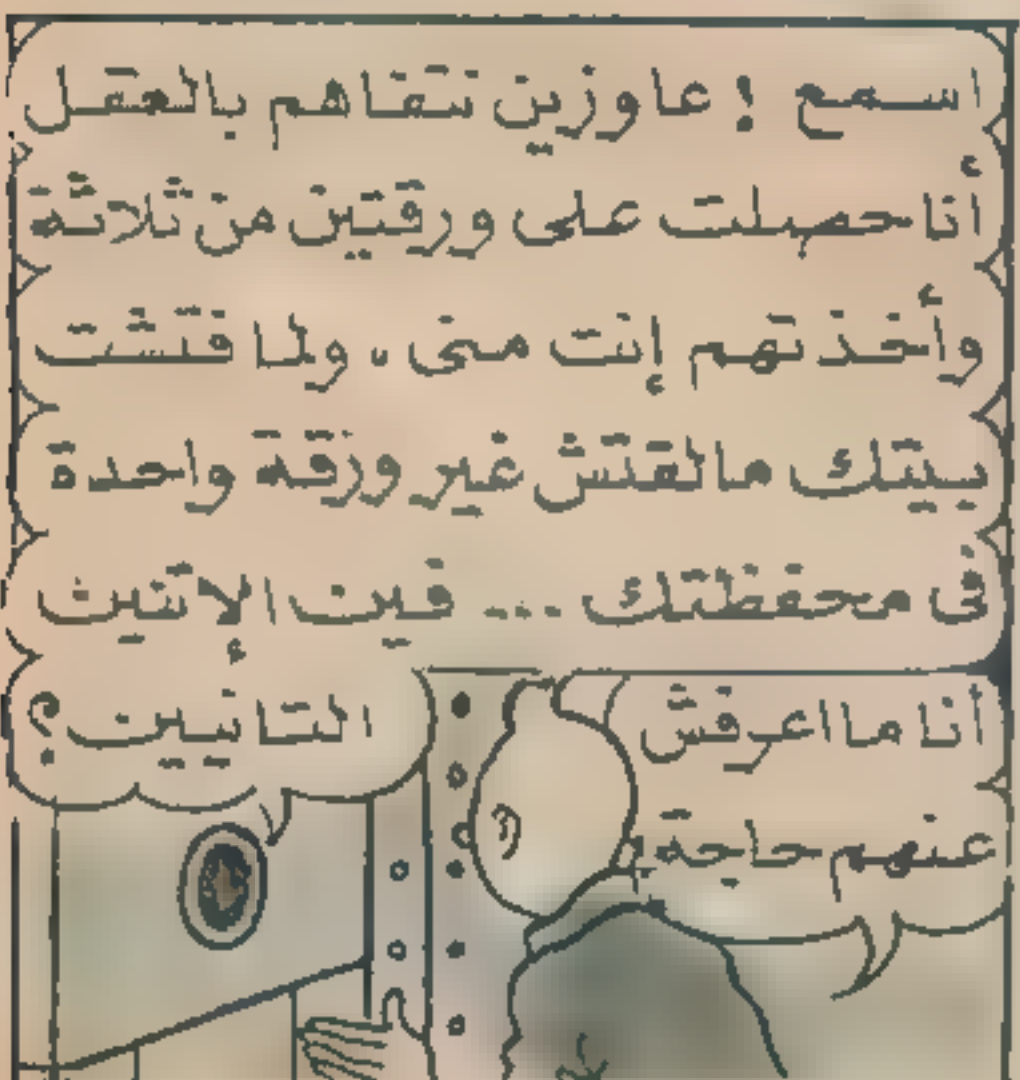 اسمع ! عاوزين نتفاهم بالعقل
أنا حصلت على ورقتين من ثلاثة
وأخذتهم إنت منى . ولما فتشت
بيتك مالقتش غير ورقة واحدة
فى محفظتك ... فين الإتنين
التانيين ؟
أنا ما اعرفش
عنهم حاجة